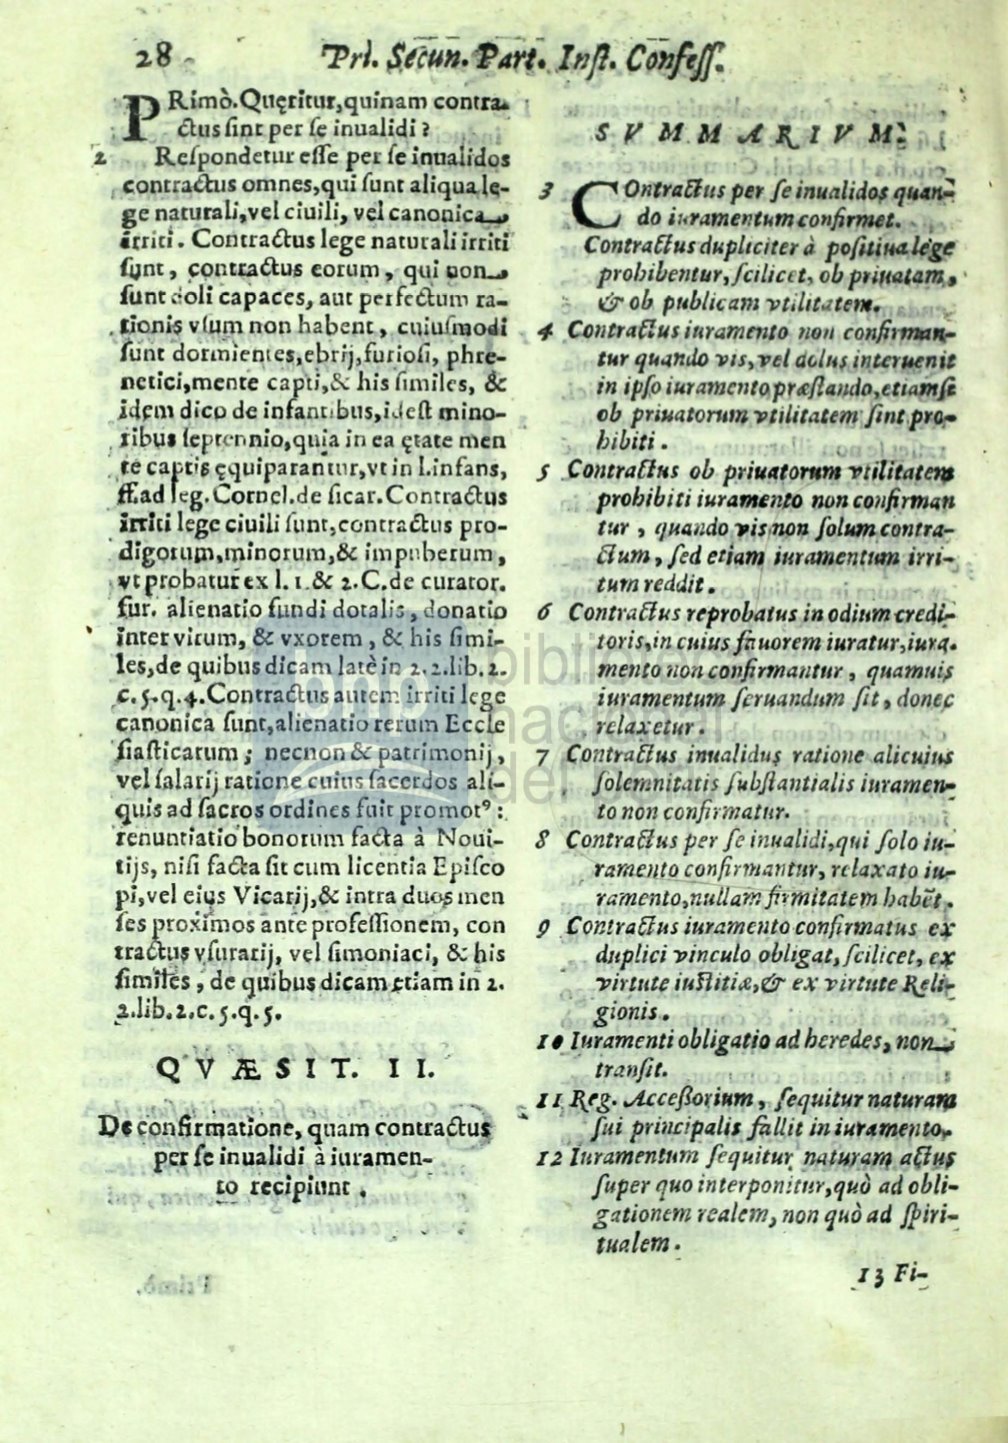 28 Pri. Secun. Part. Inst. Confess.
PRimò. Quęritur, quinam contra-
ctus sint per se inualidi?
2 Respondetur esse per se inualidos
contractus omnes, qui sunt aliqua le-
ge naturali, vel ciuili, vel canonica
irriti. Contractus lege naturali irriti
sunt, contractus eorum, qui non
sunt doli capaces, aut perfectum ra-
tionis vsum non habent, cuiusmodi
sunt dormientes, ebrij, furiosi, phre-
netici, mente capti, & his similes, &
idem dico de infantibus, idest mino-
ribus septennio, quia in ea ętate men
te captis ęquiparantur, vt in l. infans,
ff. ad leg. Cornel. de sicar. Contractus
irriti lege ciuili sunt, contractus pro-
digorum, minorum, & impuberum,
vt probatur ex l. 1. & 2. C. de curator.
fur. alienatio fundi dotalis, donatio
inter virum, & vxorem, & his simi-
les, de quibus dicam latè in 2. 2. lib. 2.
c. 5. q. 4. Contractus autem irriti lege
canonica sunt, alienatio rerum Eccle
siasticarum; necnon & patrimonij,
vel salarij ratione cuius sacerdos ali-
quis ad sacros ordines fuit promotꝰ:
renuntiatio bonorum facta à Noui-
tijs, nisi facta sit cum licentia Episco
pi, vel eius Vicarij, & intra duos men
ses proximos ante professionem, con
tractus vsurarij, vel simoniaci, & his
similes, de quibus dicam etiam in 2.
2. lib. 2. c. 5. q. 5.
QVÆSIT. II.
De confirmatione, quam contractus
per se inualidi à iuramen-
to recipiunt.
SVMMARIVM.
3 COntractus per se inualidos quan-
do iuramentum confirmet.
Contractus dupliciter à positiua lege
prohibentur, scilicet, ob priuatam,
& ob publicam vtilitatem.
4 Contractus iuramento non confirman-
tur quando vis, vel dolus interuenit
in ipso iuramento præstando, etiamsi
ob priuatorum vtilitatem sint pro-
hibiti.
5 Contractus ob priuatorum vtilitatem
prohibiti iuramento non confirman
tur, quando vis non solum contra-
ctum, sed etiam iuramentum irri-
tum reddit.
6 Contractus reprobatus in odium credi-
toris, in cuius fauorem iuratur, iura-
mento non confirmantur, quamuis
iuramentum seruandum sit, donec
relaxetur.
7 Contractus inualidus ratione alicuius
solemnitatis substantialis iuramen-
to non confirmatur.
8 Contractus per se inualidi, qui solo iu-
ramento confirmantur, relaxato iu-
ramento, nullam firmitatem habẽt.
9 Contractus iuramento confirmatus ex
duplici vinculo obligat, scilicet, ex
virtute iustitiæ, & ex virtute Reli-
gionis.
10 Iuramenti obligatio ad heredes, non
transit.
11 Reg. Accessorium, sequitur naturam
sui principalis fallit in iuramento.
12 Iuramentum sequitur naturam actus
super quo interponitur, quò ad obli-
gationem realem, non quò ad spiri-
tualem.
13 Fi-